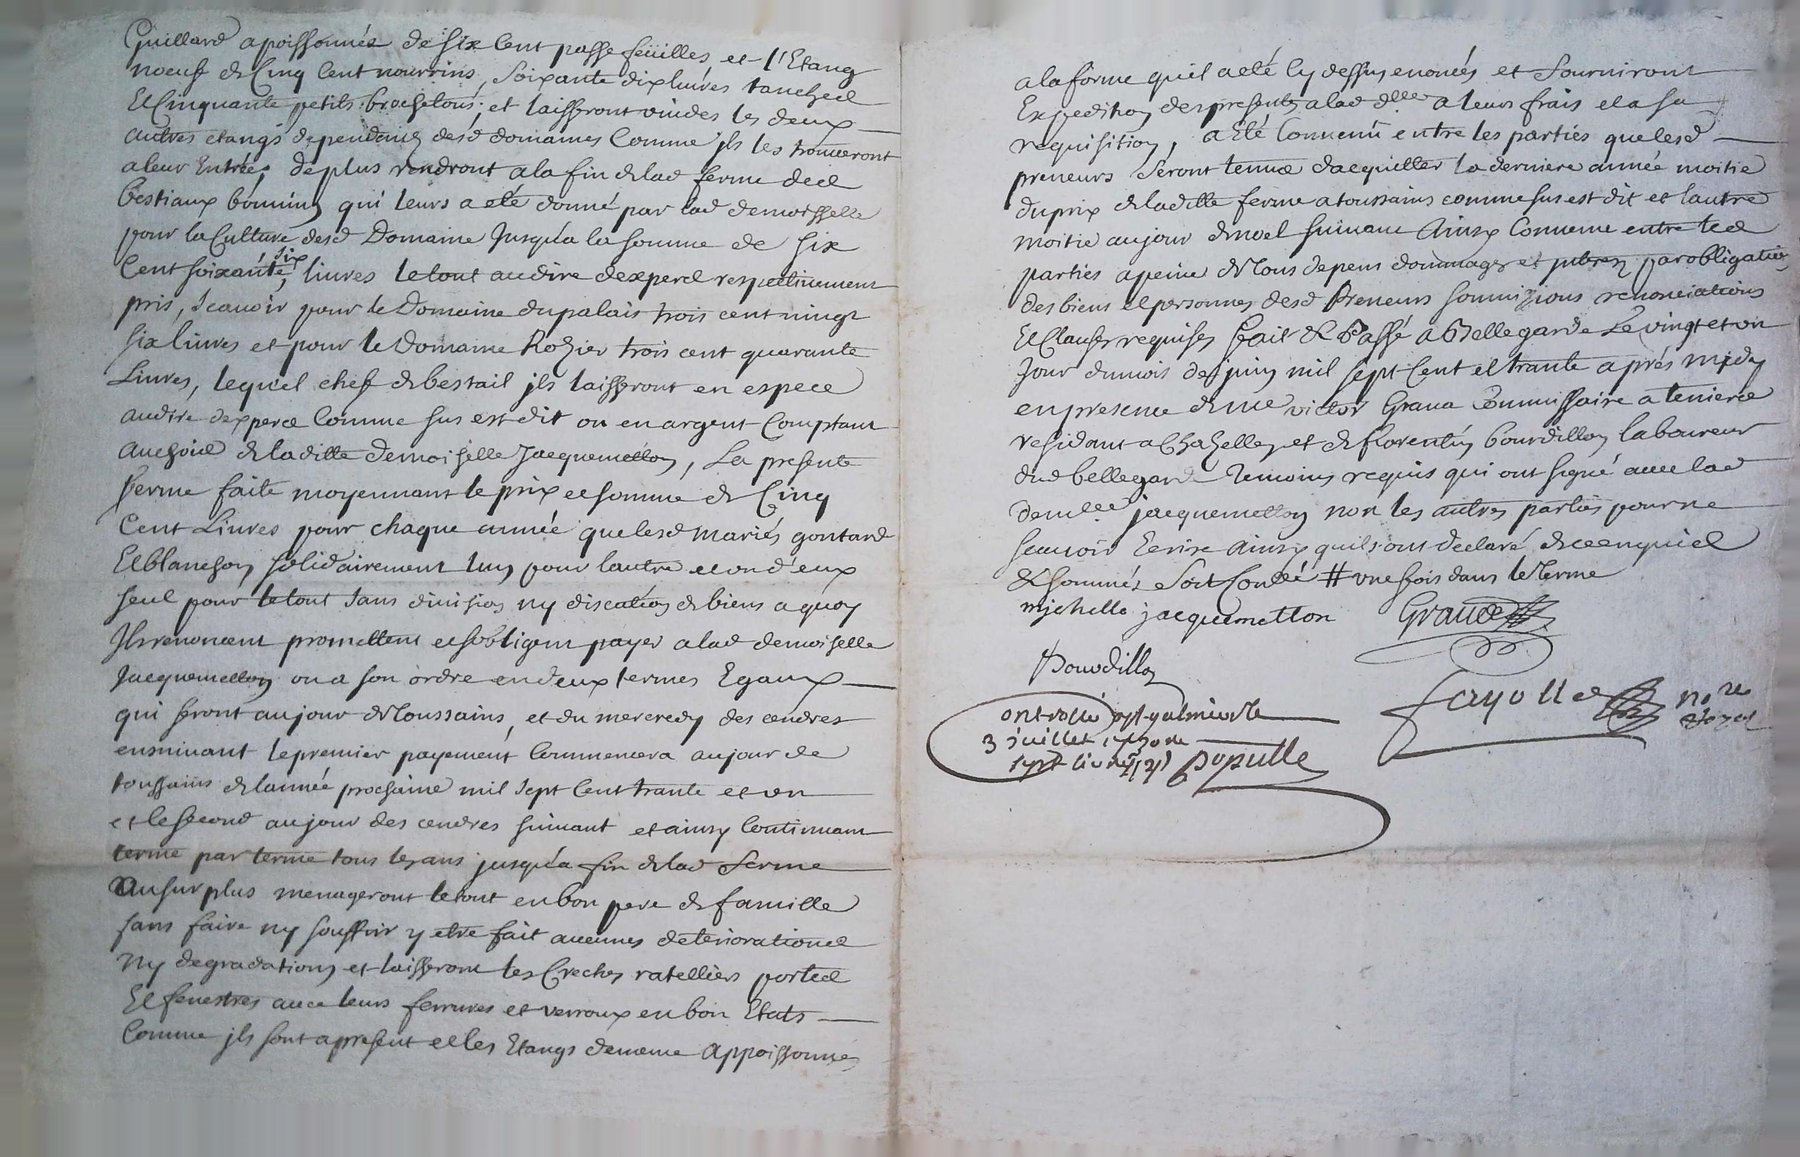 Guillard apoissonnés de six cent passe feüilles et l'Etang
noeuf de Cinq Cent nourrins, Soixante dix livres tanches
Et Cinquante petits brochetous; et laisseront vuides les deux
autres etangs dependans desd domaines Comme jls les trouveront
a leur Entrée, de plus rendront a la fin de lad ferme des
bestiaux bovins qui leurs a eté donné par lad demoisselle
pour la Culture desd Domaine Jusqu'a la somme de six
Cent soixante six livres le tout au dire dexpers respectivement
pris, scavoir pour le Domaine du palais trois cent vingt
six livres et pour le Domaine Rozier trois cent quarante
Livres, lequel chef de bestail jls laisseront en espece
au dire dexpers Comme sus est dit ou en argent Comptant
au choix de laditte demoiselle Jacquemetton, La presente
ferme faite moyennant le prix et somme de Cinq
Cent Livres pour chaque année que lesd mariés gontard
Et blanchon solidairement lun pour lautre et un d'eux
seul pour le tout sans division ny discution de biens a quoy
Jls renoncent promettent et sobligent payer a lad demoiselle
Jacquemetton ou a son ordre en deux termes Egaux
qui seront au jour de Toussains, et du mercredy des cendres
ensuivant le premier payement Commencera au jour de
toussains de lannée prochaine mil sept Cent trante et un
et le second au jour des cendres suivant et ainsy Continuant
terme par terme tous les ans jusqu'a fin de lad ferme
au surplus menageront le tout en bon pere de famille
sans faire ny souffrir y etre fait aucunes deteriorations
Ny degradations et laisseront les Creches ratelliers portes
Et fenestres avec leurs ferrures et verroux en bon Etats
Comme jls sont a present et les Etangs de meme appoissonnés
a la forme qu'il a eté Cy dessus enoncés et fourniront
Expedition des presentes a lad dlle a leurs frais et a sa
requisition, a Eté Convenu entre les parties que lesd
preneurs seront tenus dacquitter la derniere année moitie
du prix de laditte ferme a toussains comme sus est dit et lautre
moitie au jour de noel suivant Ainsy Convenu entre les
parties a peine de tous depens dommages et jnterez par obligation
des biens et personnes desd preneurs soumissions renonciations
Et Clauses requises fait et Passé a Bellegarde Le vingt et un
jour du mois de juin mil sept Cent et trante aprés midy
en presence de me victor Grava Commissaire a terriers
residant a Chazelles et de florentin bourdillon laboureur
dud bellegarde temoins requis qui ont signé avec lad
demlle jacquemetton non les autres parties pour ne
scavoir Ecrire Ainsy quils ont declaré de ce enquis
et sommés soit Contlé # une fois dans le terme
mjchelle jacquemetton Grava
bourdillon
Fayolle nore
Royal
Controllé a st galmier le
3 juillet 1730 Re
sept livres Populle